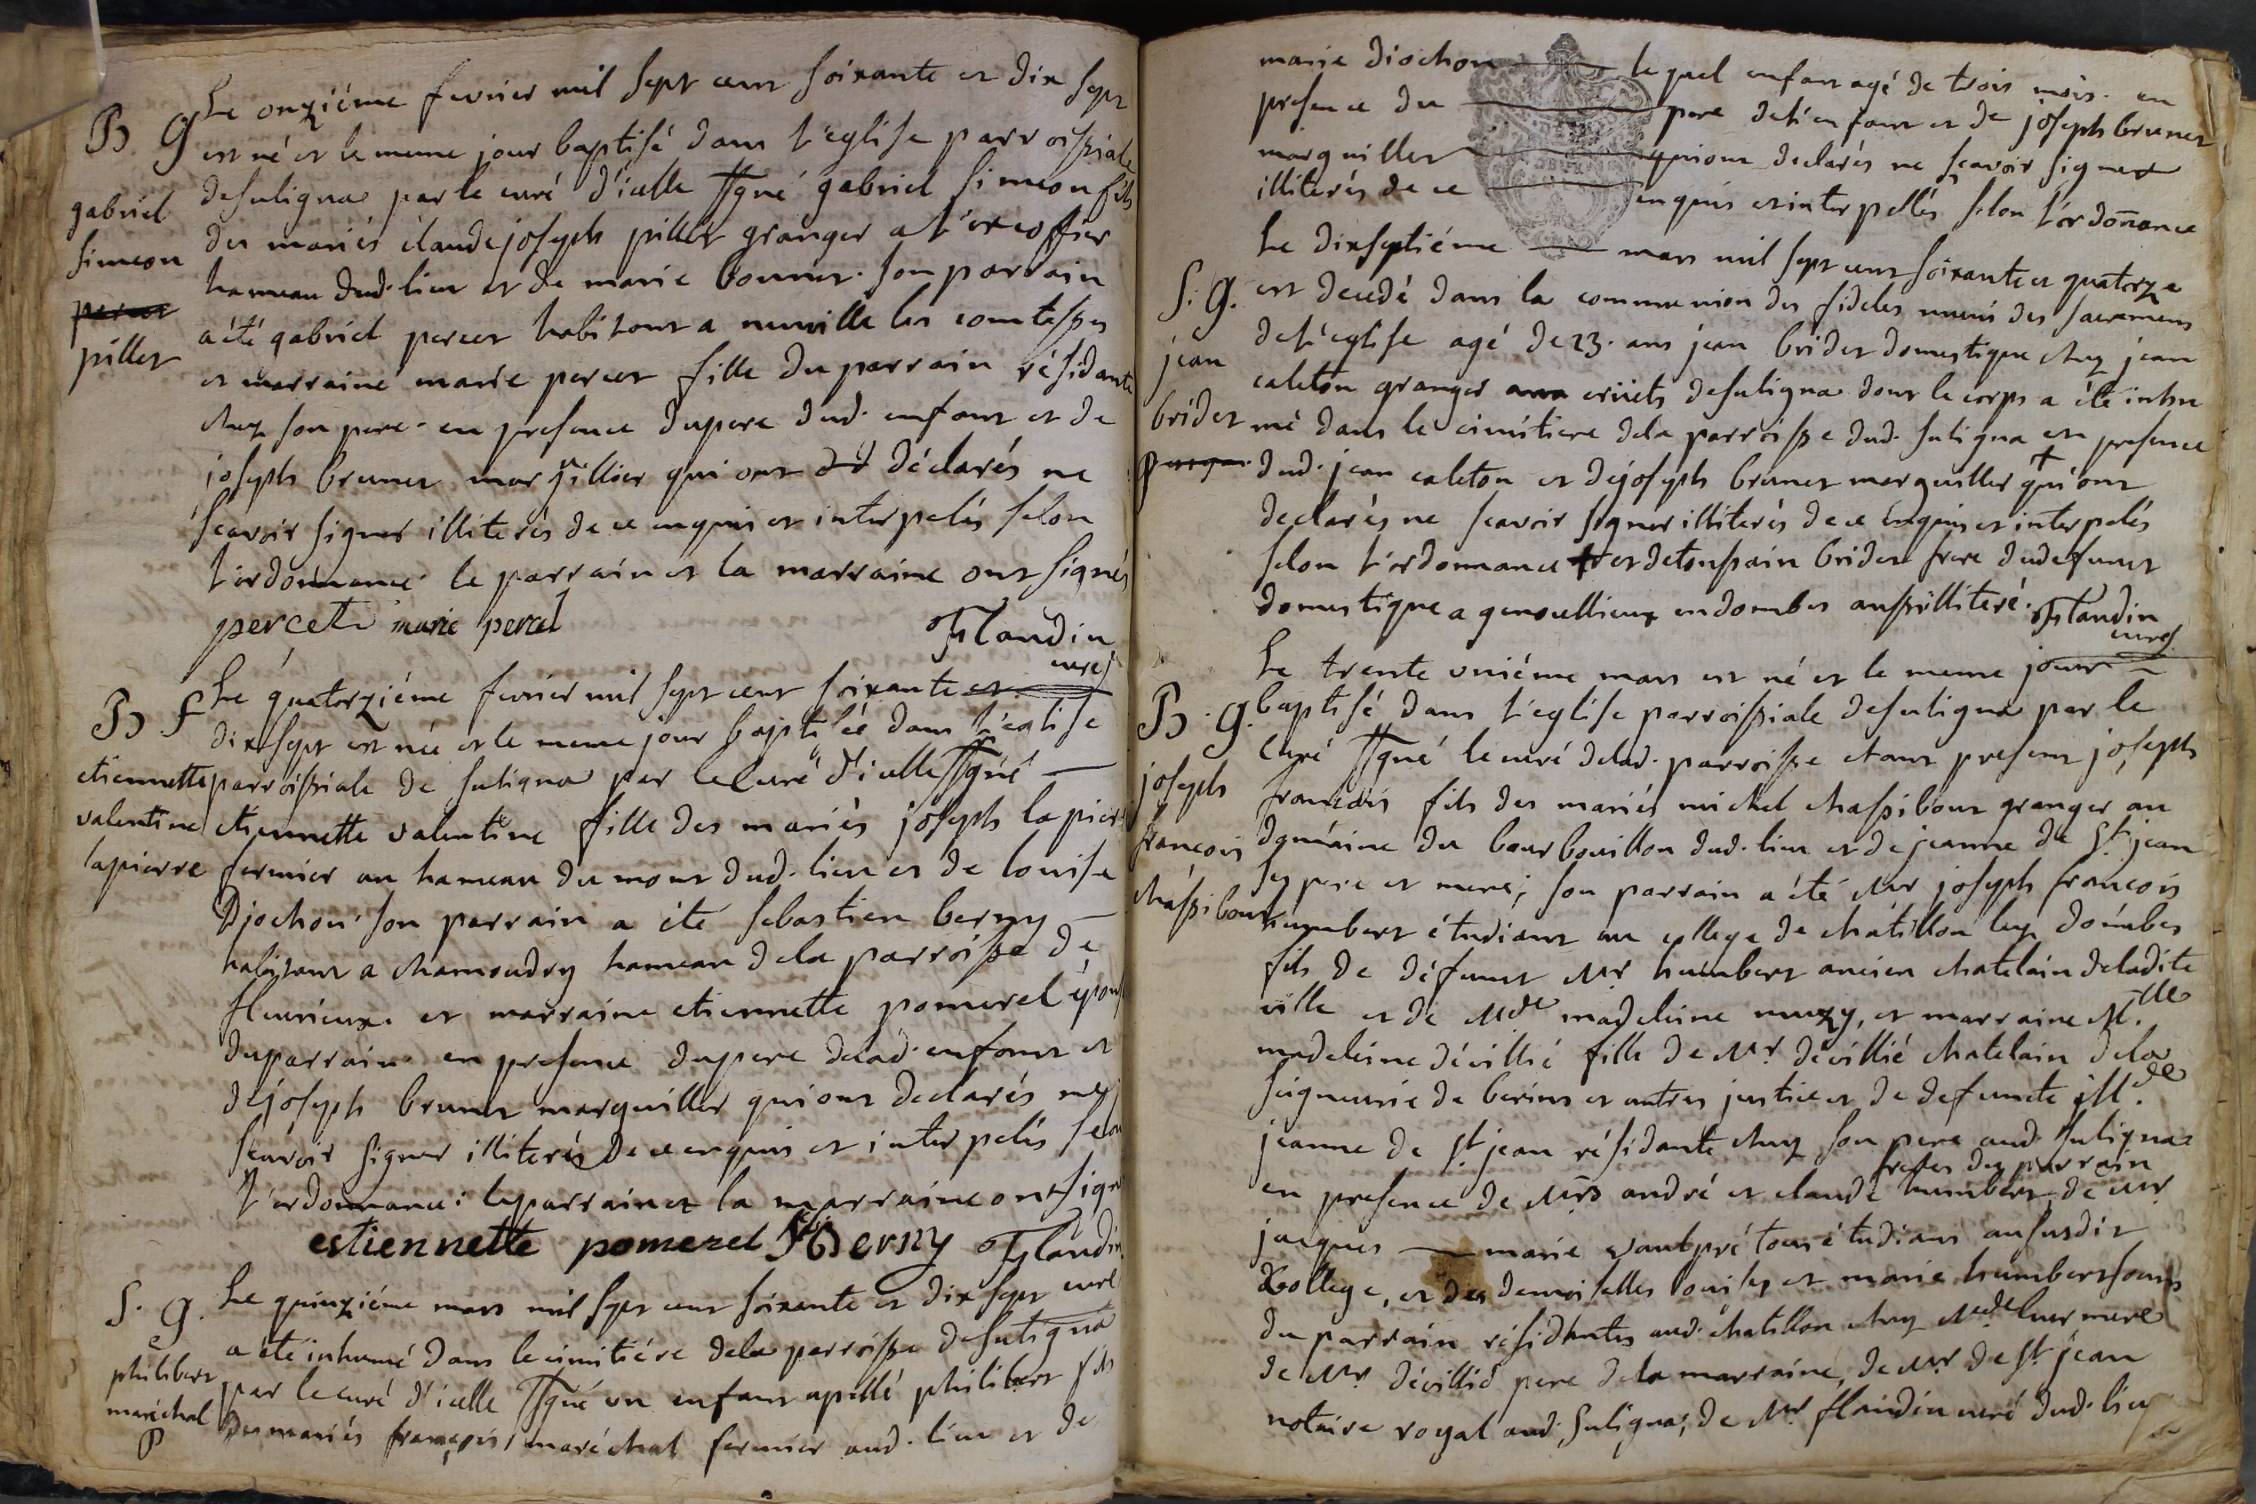 B G
gabriel
simeon
percet
pillet
Le onziéme fevrier mil sept cent soixante et dix sept
est né et le meme jour baptisé dans l'eglise parroissiale
de suligna par le curé d'icelle ssgné gabriel simeon fils
des mariés claude joseph pillet granger a
hameau dud. lieu et de marie bonnet. son parrain
a été gabriel percet habitant a neuville les comtesses
et marraine marie percet fille du parrain résidante
chez son pere. en presence du pere dud. enfant et de
joseph brunet marguillier qui ont déclarés ne
scavoir signer illiterés de ce enquis et interpelés selon
l'ordonnance. le parrain et la marraine ont signés
percet marie percet
Flandin
curé
B f
etiennette
valentine
lapierre
Le quatorziéme fevrier mil sept cent soixante et
dix sept est née et le meme jour baptisée dans l'eglise
parroissiale de suligna par le curé d'icelle ssgné
etiennette valentine fille des mariés joseph lapierre
fermier au hameau du mont dud. lieu et de louise
Djochon son parrain a été sebastien berny
habitant a chamoudry hameau de la parroisse de
fleurieux. et marraine etiennette pomerel épouse
du parrain. en presence du pere de lad. enfant et
de joseph brunet marguillier qui ont declarés ne
scavoir signer illiterés de ce enquis et interpelés selon
l'ordonnance: le parrain et la marraine ont signé
estiennette pomerel S Berny Flandin
curé
S. G.
philibert
maréchal
P
Le quinziéme mars mil sept cent soixante et dix sept
a été inhumé dans le cimitiére de la parroisse de suligna
par le curé d'icelle ssgné un enfant apellé philibert fils
des mariés francois maréchal fermier aud. lieu et de
marie diochon lequel enfant agé de trois mois. en
presence du pere de l'enfant et de joseph brunet
marguillier qui ont declarés ne scavoir signer
illiterés de ce enquis et interpellés selon l'ordonance
S. G.
jean
bridet
Le dixseptiéme mars mil sept cent soixante et quatorze
est decedé dans la communion des fideles muni des sacremens
de l'eglise agé de 23. ans jean bridet domestique chez jean
caleton granger de suligna dont le corps a été inhu
mé dans le cimitiere de la parroisse dud. suligna en presence
dud. jean caleton et de joseph brunet marguillier + qui ont
declarés ne scavoir signer illiterés de ce enquis et interpelés
selon l'ordonnance + et de tonssain bridet frere dud. defunct
domestique a genoullieux en dombes aussi illiteré. Flandin
curé
B. G.
joseph
francois
chassibout
Le trente uniéme mars est né et le meme jour
baptisé dans l'eglise parroissiale de suligna par le
curé ssgné le curé de lad. parroisse etant present joseph
francois fils des mariés michel chassibout granger au
domaine du bourbouillon dud. lieu et de jeanne de St. jean
ses pere et mere; son parrain a été Mr joseph francois
humbert étudiant au college de chatillon les dombes
fils de défunct Mr. humbert ancien chatelain de ladite
ville et de Mde madeleine muzy, et marraine M.lle
madeleine dévillié fille de Mr. dévillié chatelain de la
seigneurie de berins et autres justice et de defuncte M.de
jeanne de St. jean résidante chez son pere aud. suligna
freres du parrain
en presence de Mrs andré et claude humbert, de Mr
jacques marie vautpré tous étudians au susdit
College, et des demoiselles louise et marie humbert soeurs
du parrain résidantes aud. chatillon chez Mde leur mere
de Mr. dévillié pere de la marraine, de Mr de St. jean
notaire royal aud. suligna; de Mr flandin curé dud. lieu